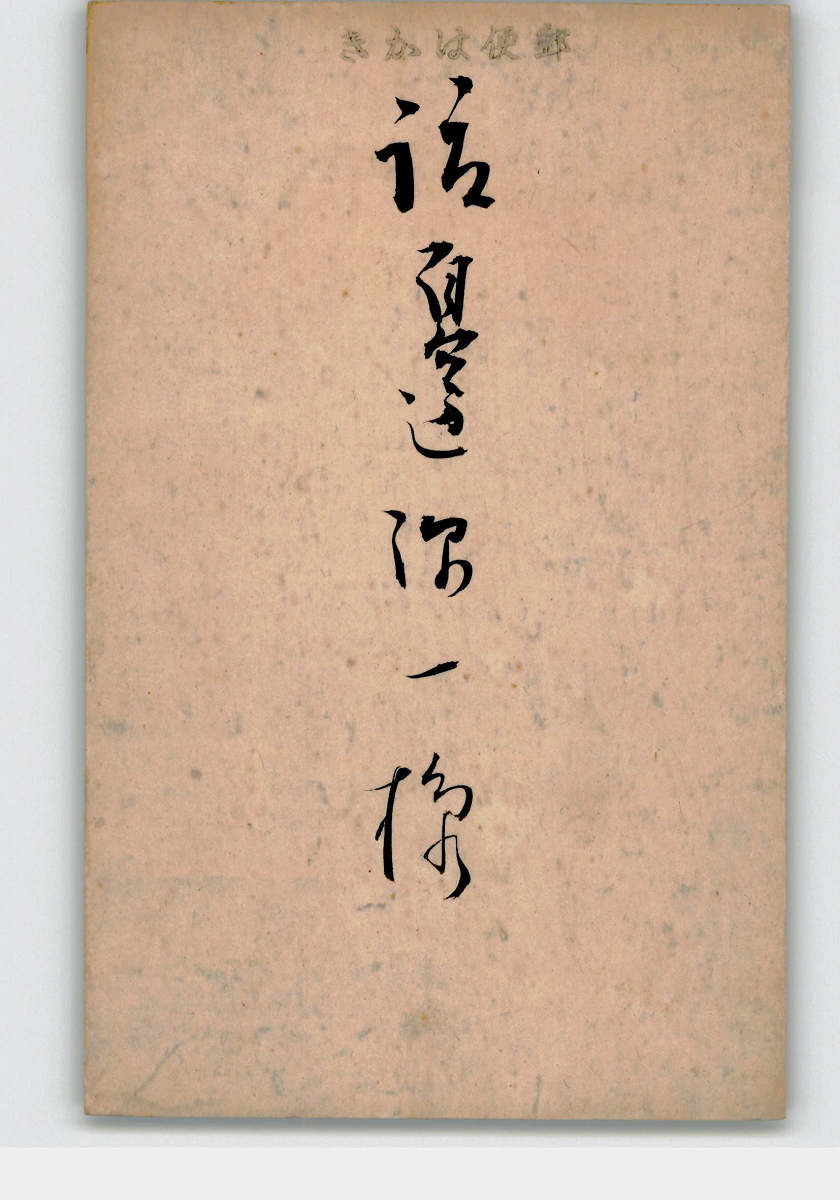 郵便はかき
邊一様